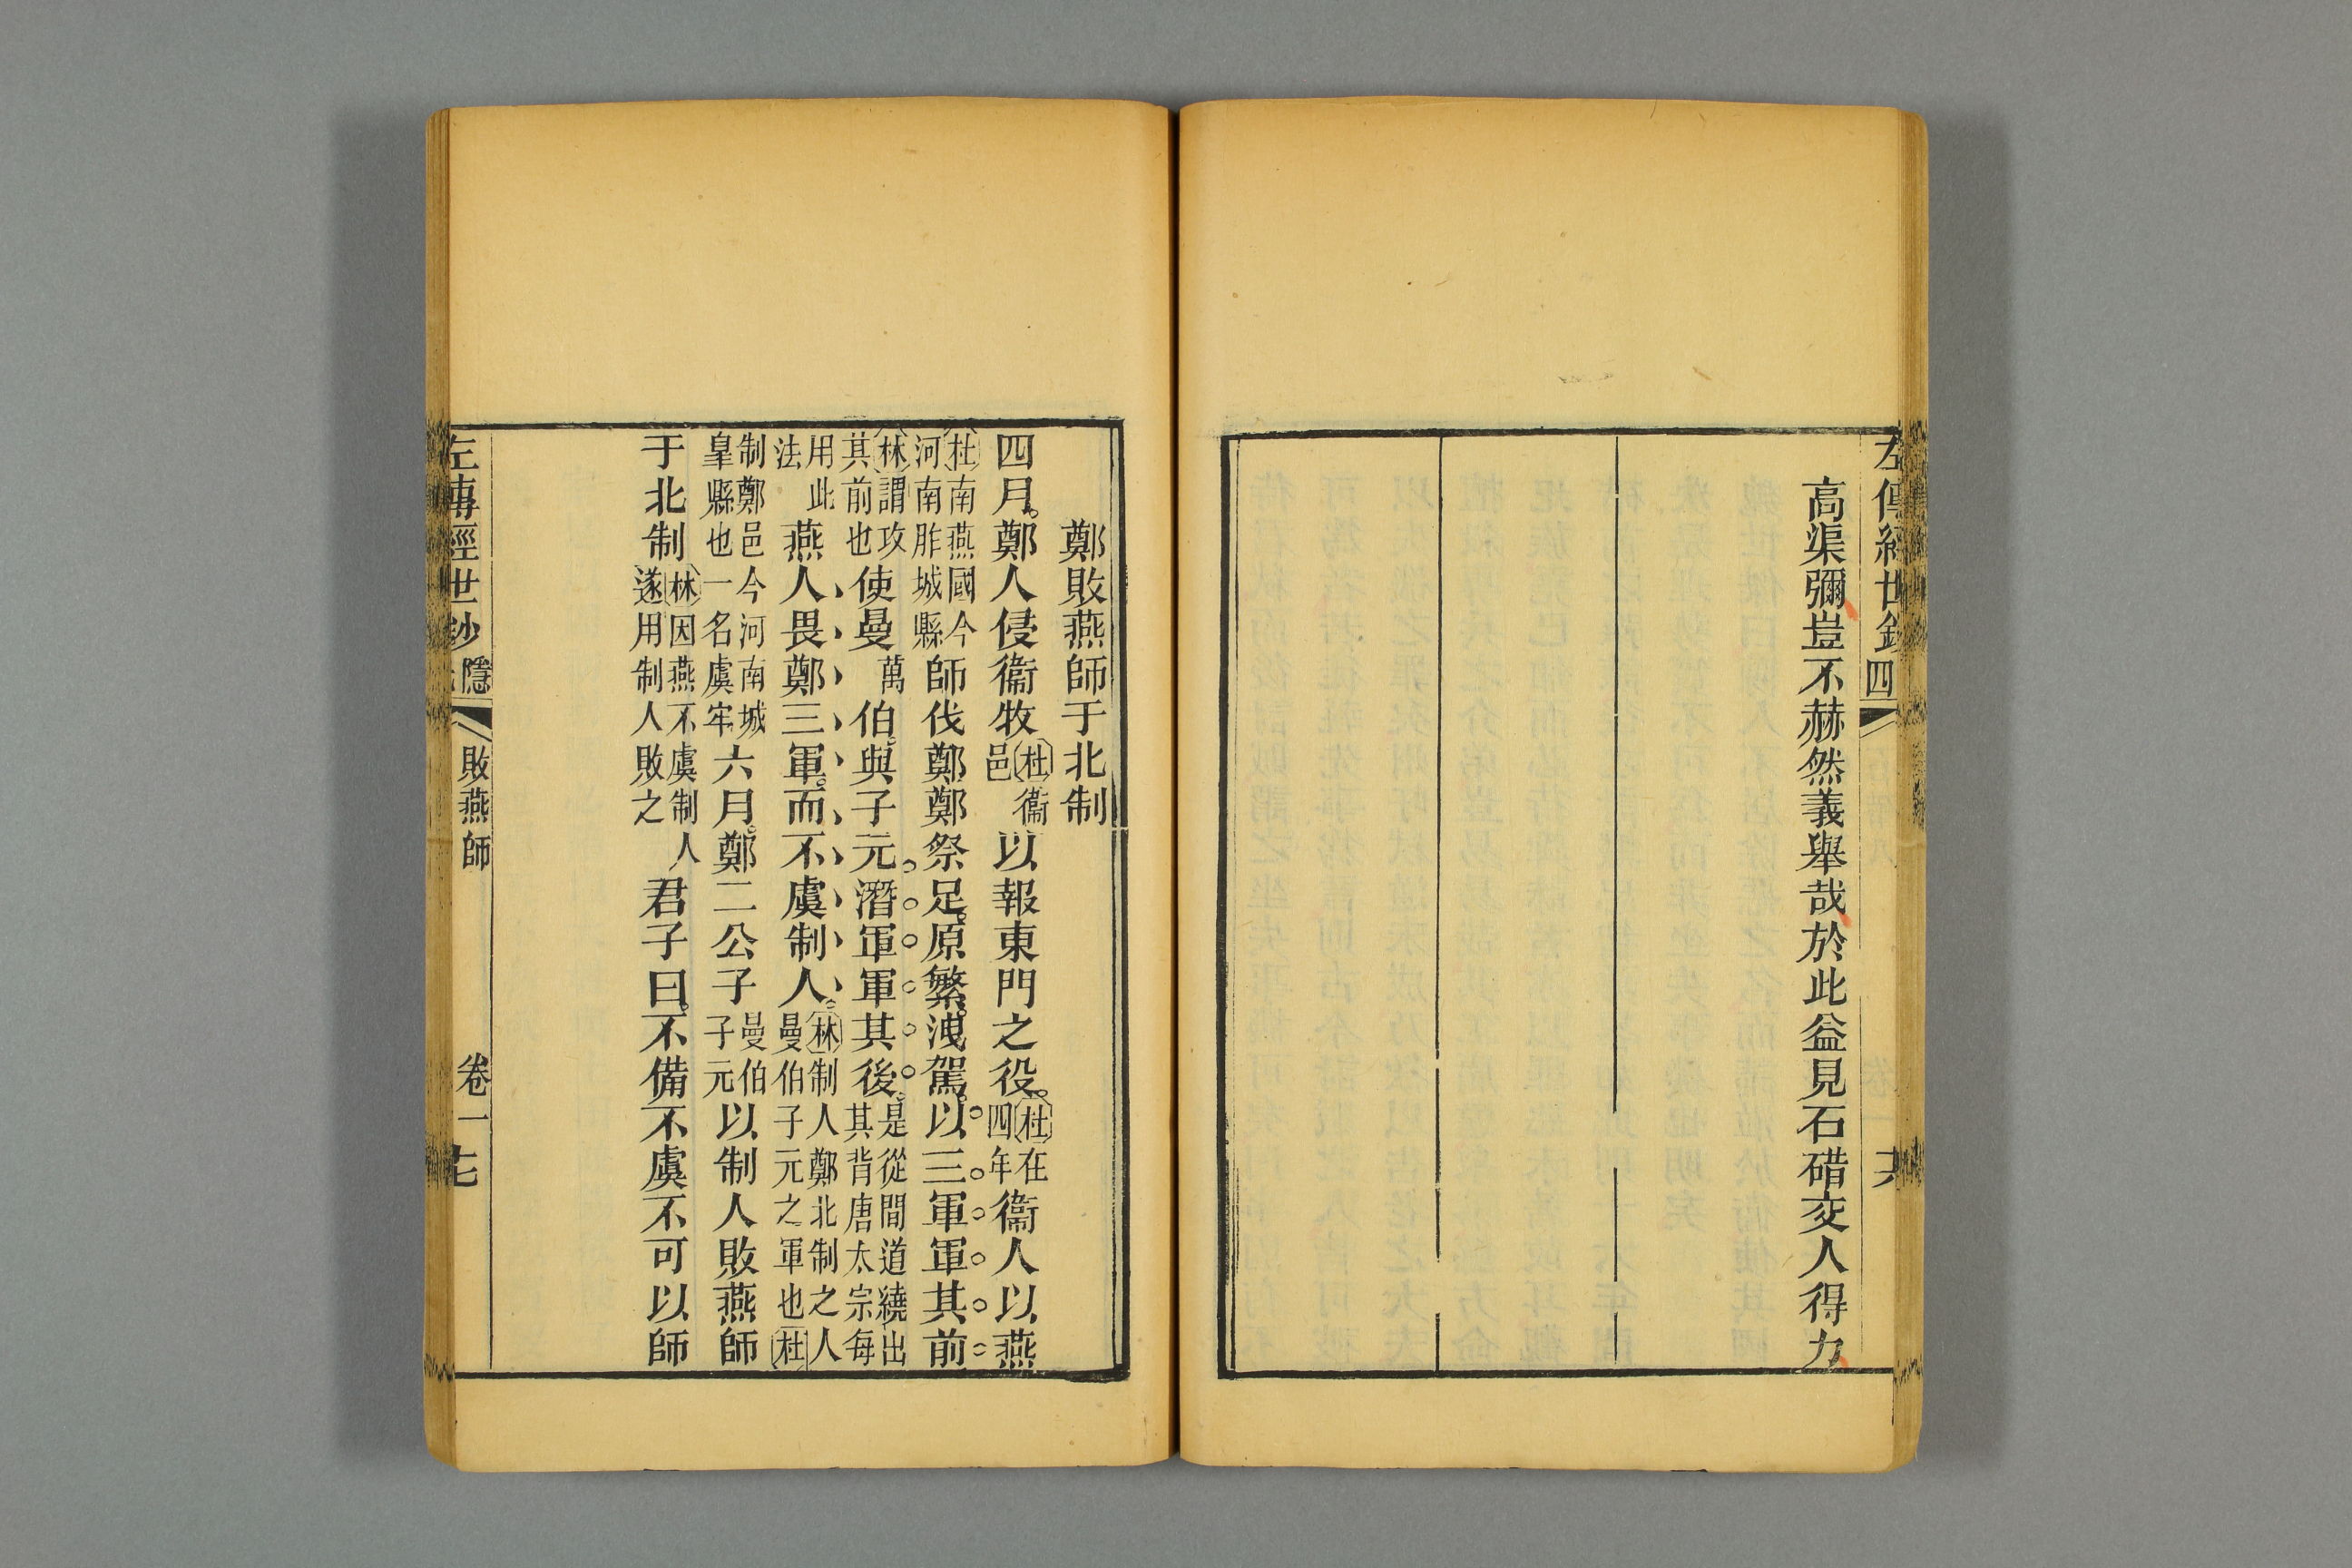 左傳經世鈔 四
高渠彌豈不赫然義舉哉於此益見石碏交人得力
鄭敗燕師于北制
四月鄭人侵衞牧杜衞邑以報東門之役杜在四年衞人以燕
杜南燕國今河南胙城縣師伐鄭鄭祭足原繁洩駕以三軍軍其前
林謂攻其前也使曼萬伯與子元潛軍軍其後是從間道繞出其背唐太宗每
用此法燕人畏鄭三軍而不虞制人林制人鄭北制之人曼伯子元之軍也杜
制鄭邑今河南城皐縣也一名虞牢六月鄭二公子曼伯子元以制人敗燕師
于北制林因燕不虞制人遂用制人敗之君子曰不備不虞不可以師
左傳經世鈔 隱 敗燕師 卷一